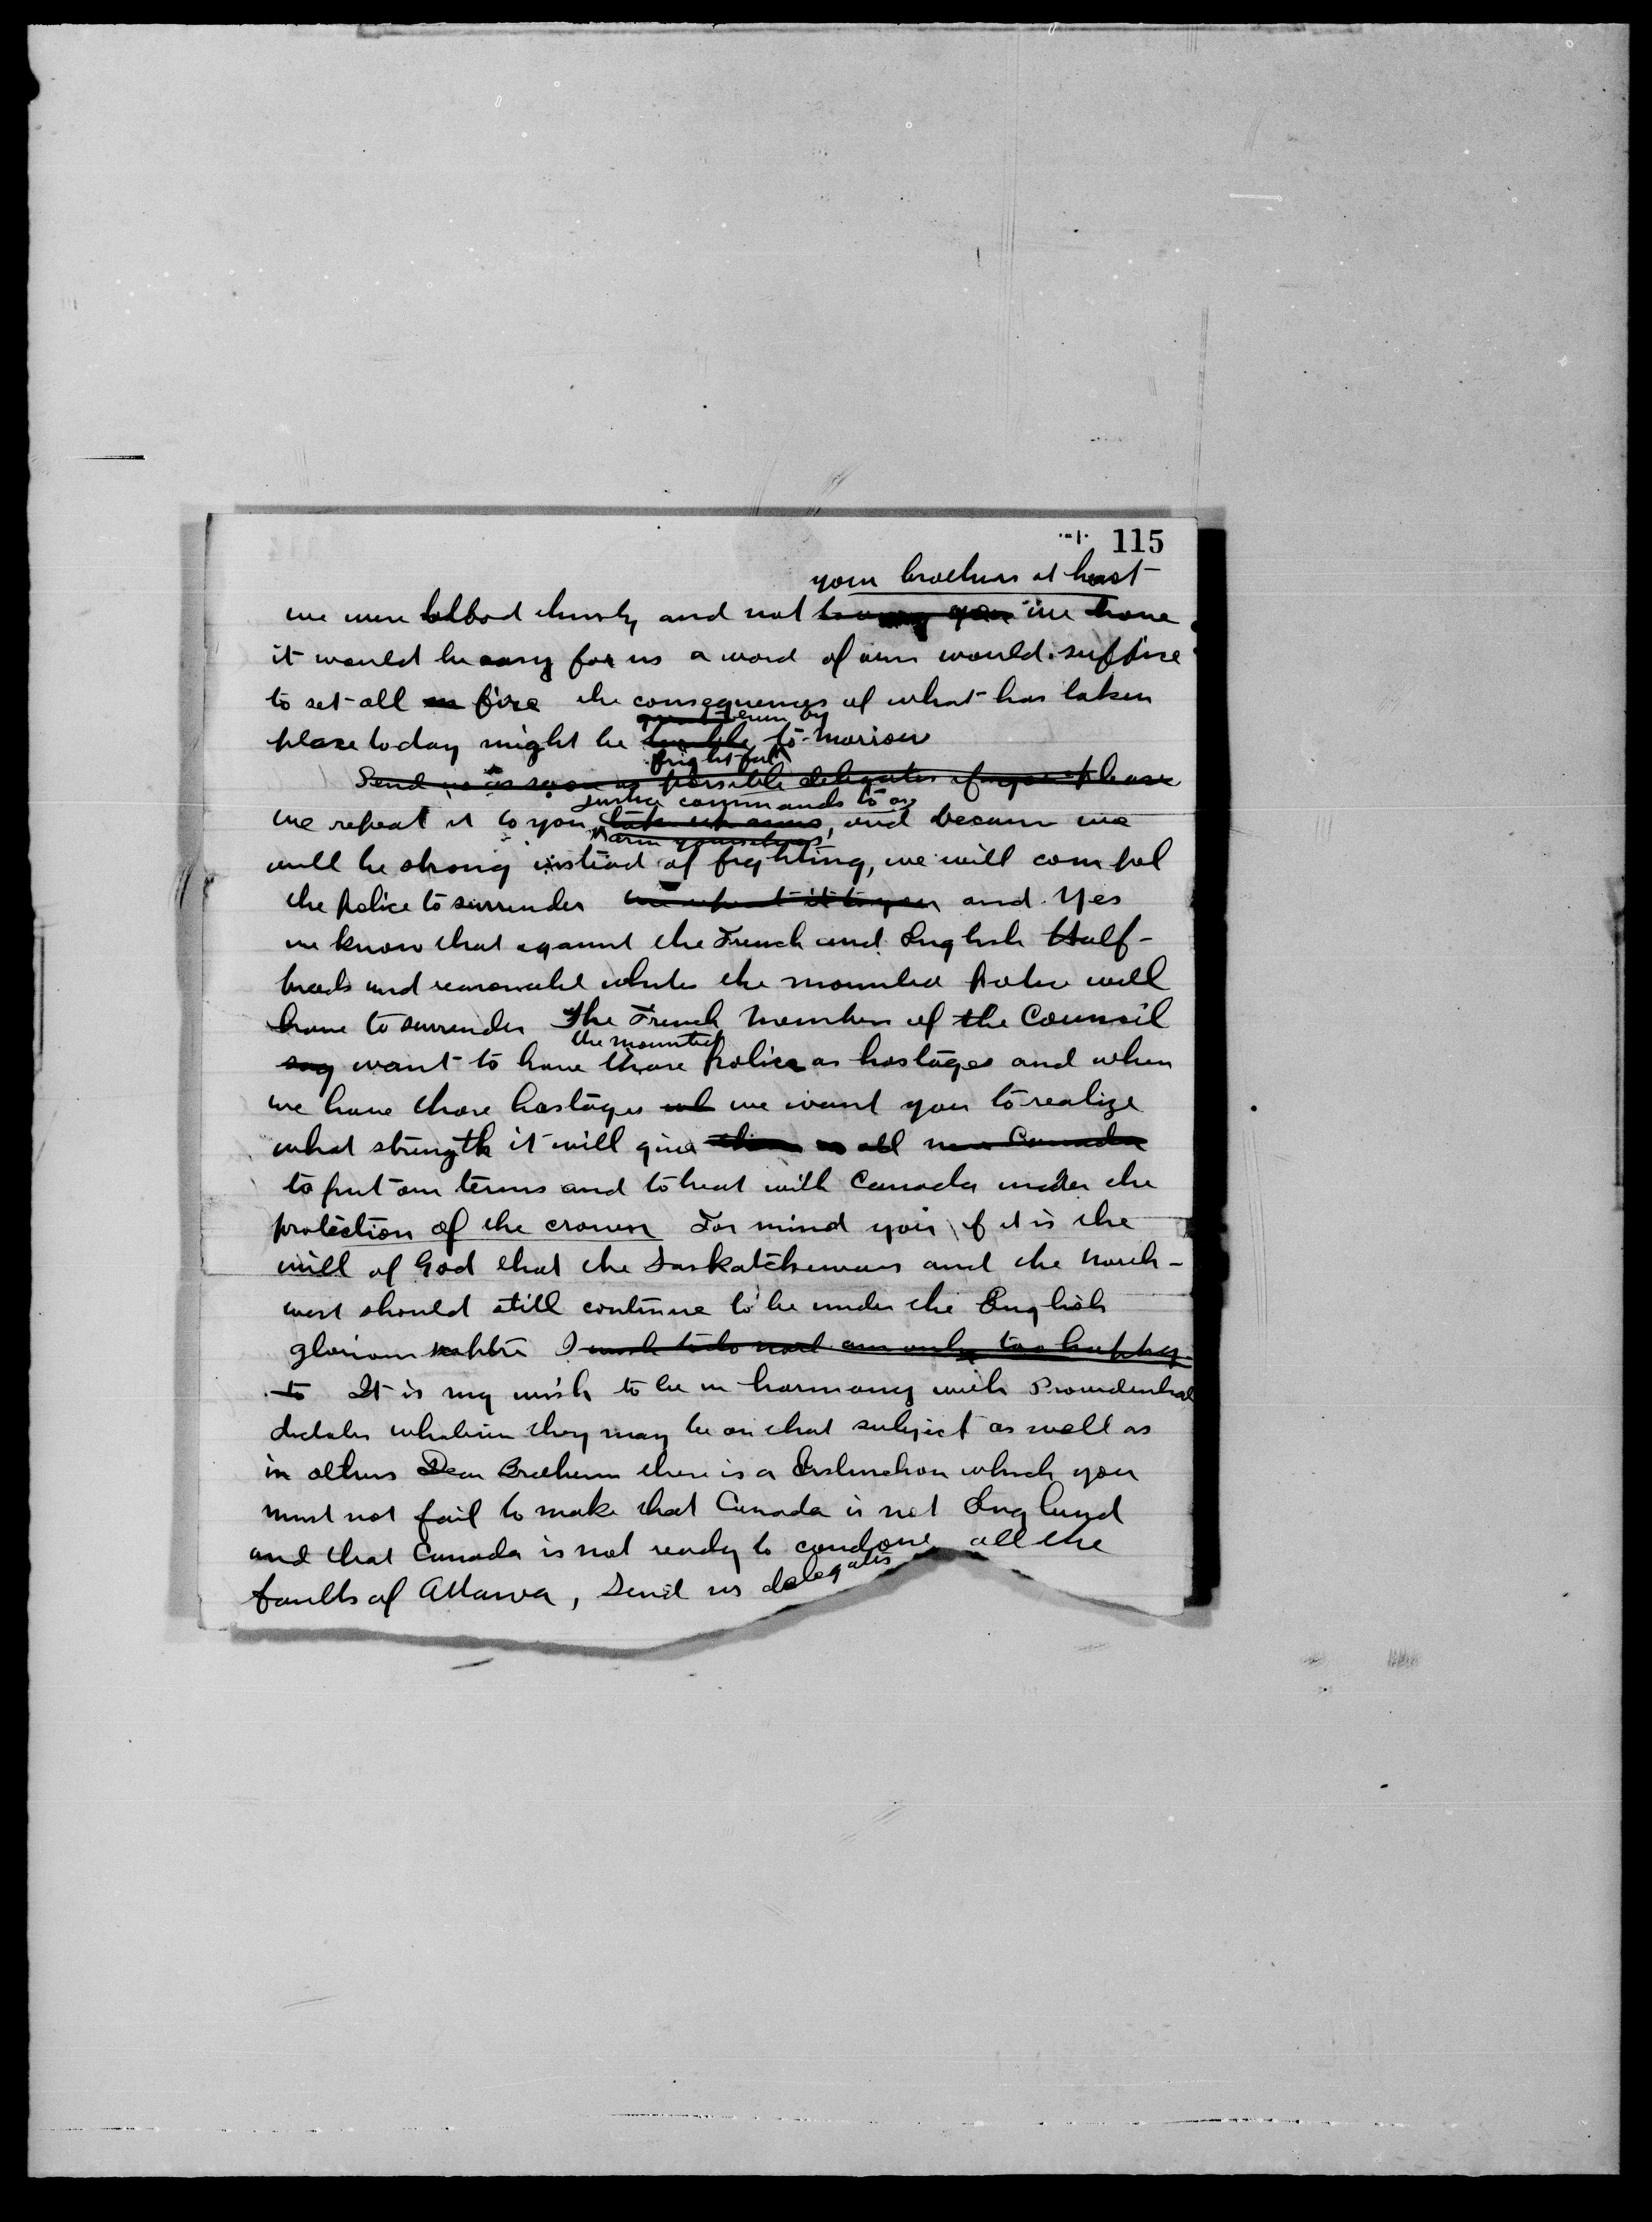 115
your brothers at heart
we were blood thirsty and not we have
it would be easy for us a word of ours would suffise
to set all on fire the consequences of what has taken
even by
place today might be terrible to-morrow
frightful
Send us as soon as possible delegates if you please
justice commands to as
we repeat it to you take up arms, and because we
arm yourselves
will be strong instead of fighting, we will compel
the police to surrender we repeat it to you and Yes
we know that against the French and English Half-
breeds and reasonable whites the mounted police will
have to surrender The French Members of the Council
the mounted
say want to have those police as hostages and when
we have those hostages we want you to realize
what strength it will give them us all Canada
to put our terms and to treat with Canada under the
protection of the crown For mind you if it is the
will of God that the Saskatchewan and the North-
west should still continue to be under the English
glorious I wish to do not am only too happy
to It is my wish to be in harmony with Providential
dictates whatever they may be on that subject as well as
in others Dear Brethren there is a distinction which you
must not fail to make that Canada is not England
and that Canada is not ready to condone all the
faults of Ottawa, send us delegates